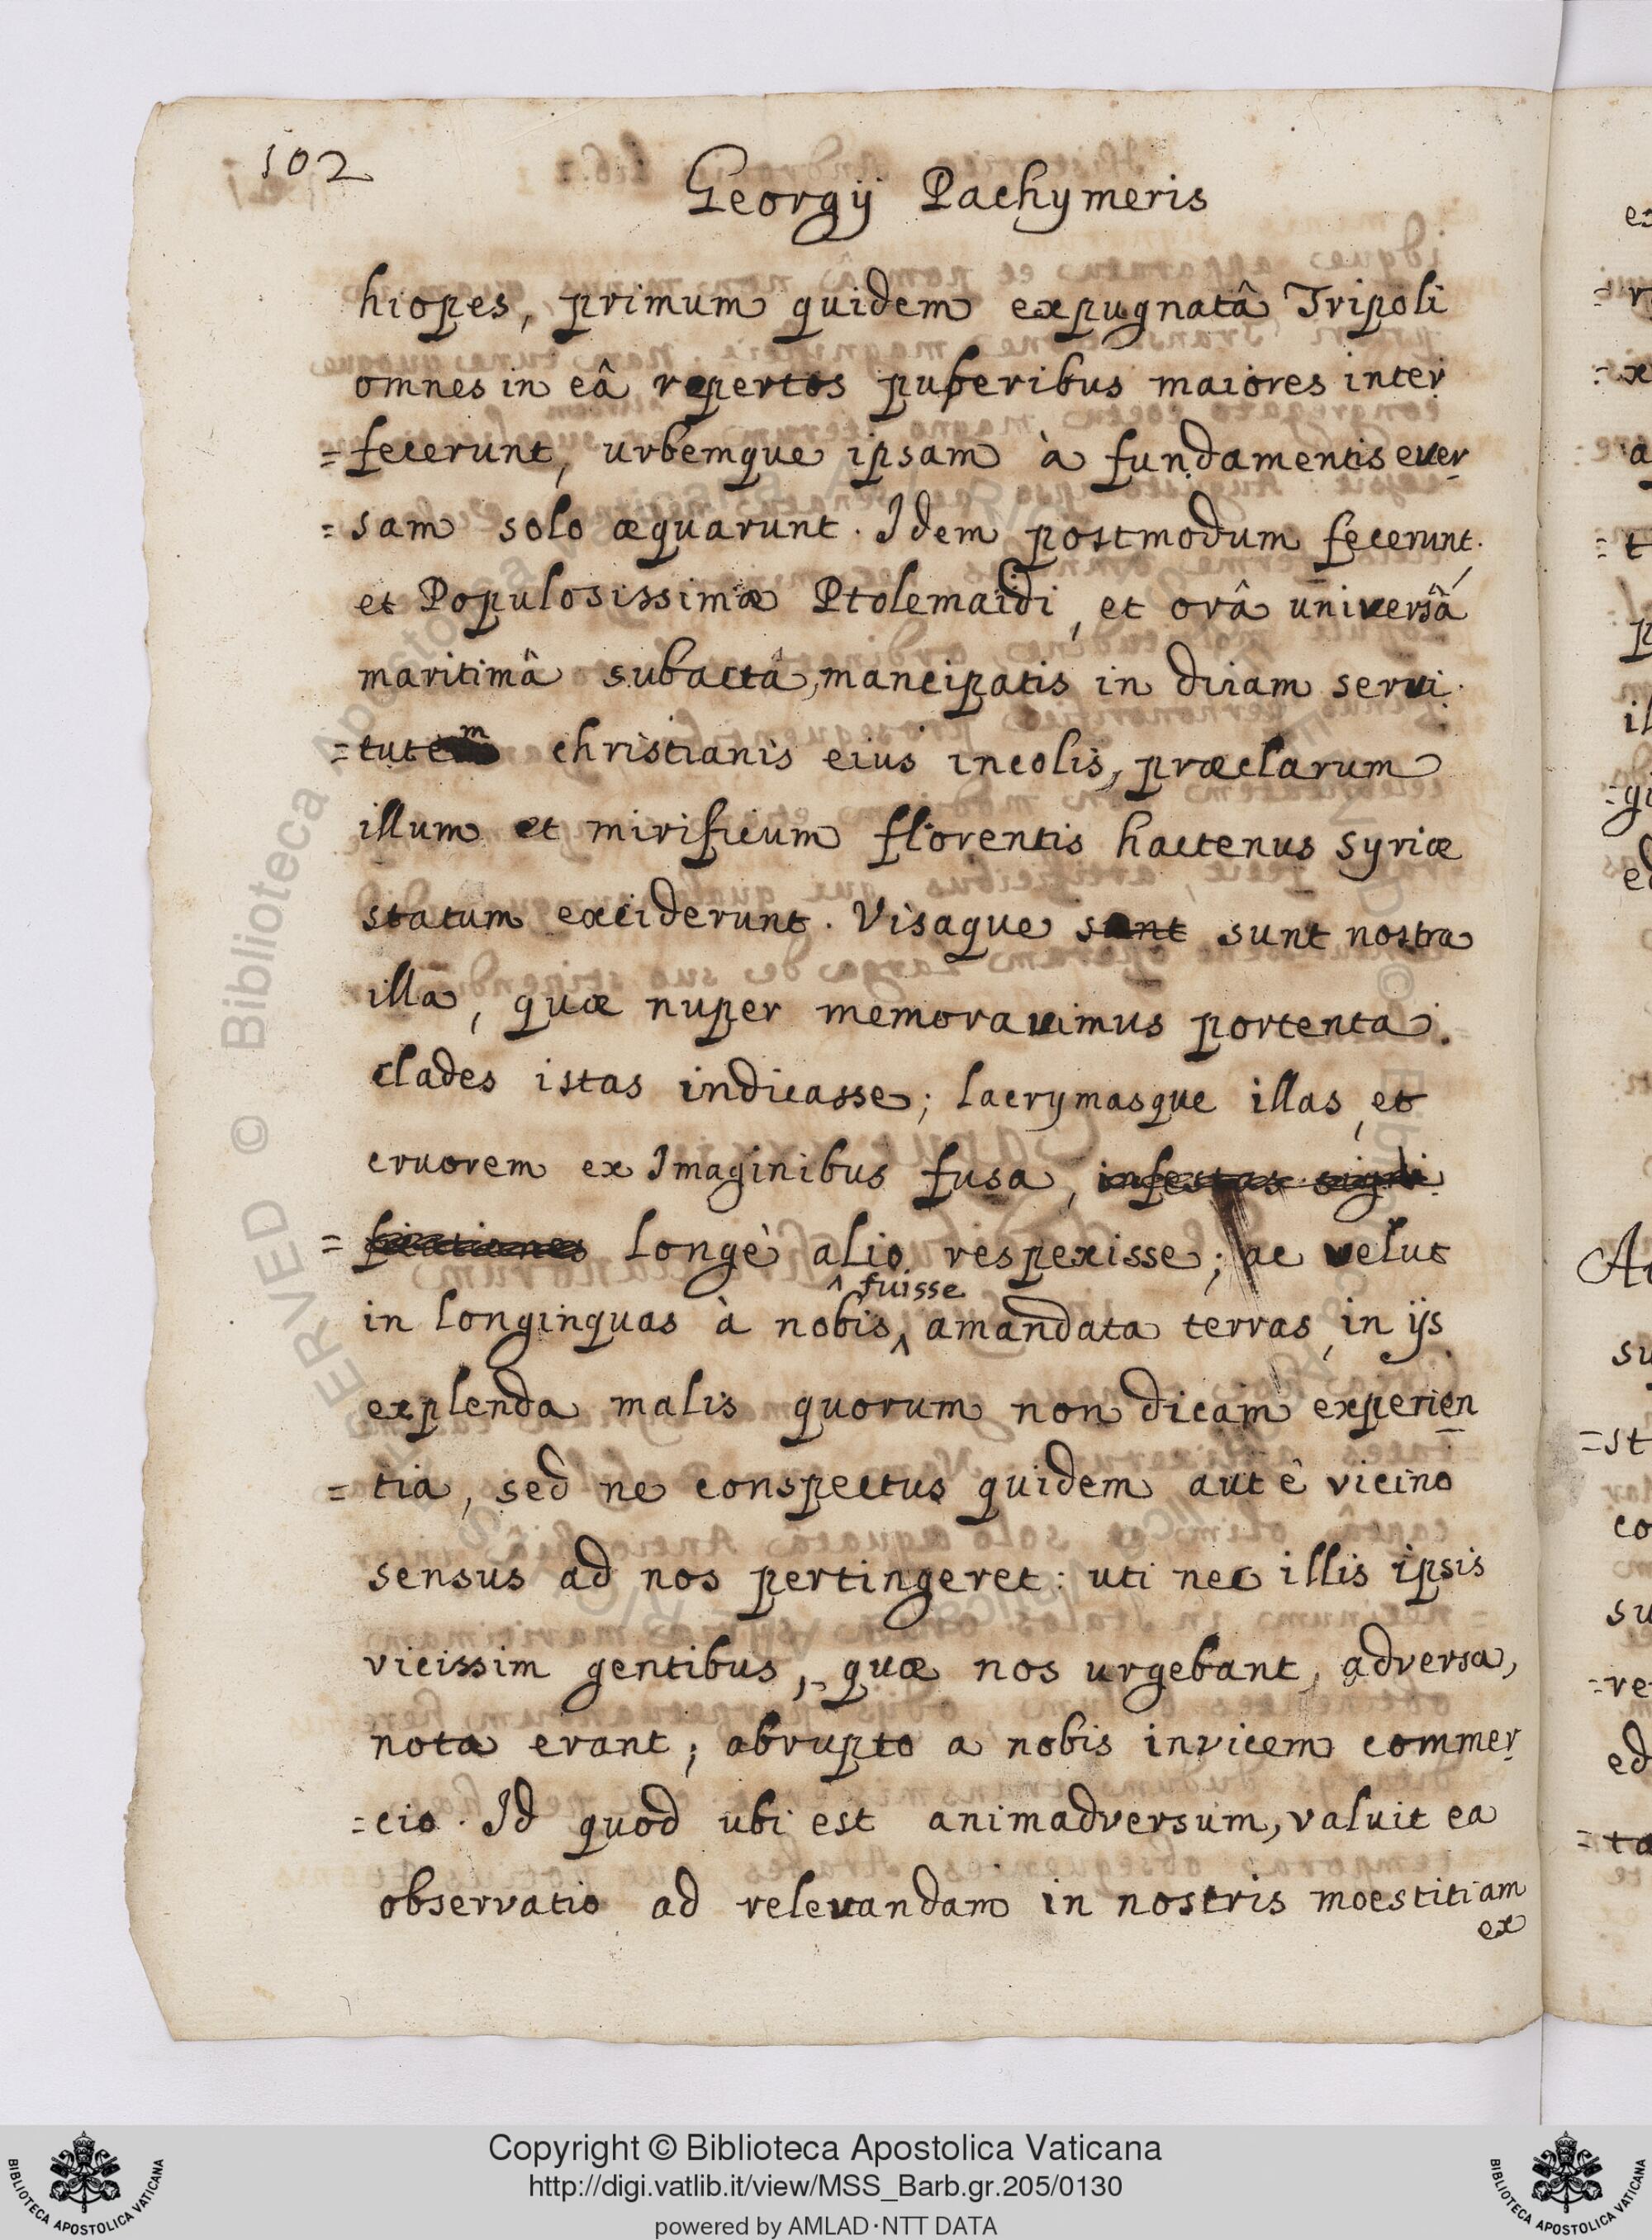 102
Georgij Pachymeris
hiopes, primum quidem expugnatâ Tripoli
omnes in eâ repertos puberibus maiores inter
=fecerunt, urbemque ipsam à fundamentis ever
=sam solo æquarunt. Idem postmodum fecerunt
et Populosissimæ Ptolemaidi, et orâ universâ
maritimâ subactâ, mancipatis in diram servi
=tutem christianis eius incolis, præclarum
illum et mirificum florentis hactenus Syriæ
statum exciderunt. Visaque sunt sunt nostra
illa, quæ nuper memoravimus portenta
clades istas indicasse; lacrymasque illas, et
cruorem ex Imaginibus fusa, infestas signi
=ficationes longè alio respexisse; ac velut
fuisse
in longinquas à nobis ^ amandata terras, in ijs
explenda malis quorum non dicam experien
=tia, sed ne conspectus quidem aut è vicino
sensus ad nos pertingeret: uti nec illis ipsis
vicissim gentibus, quæ nos urgebant, adversa,
nota erant; abrupto a nobis invicem commer
=cio. Id quod ubi est animadversum, valuit ea
observatio ad relevandam in nostris moestitiam
ex
Copyright © Biblioteca Apostolica Vaticana
http://digi.vatlib.it/view/MSS_Barb.gr.205/0130
powered by AMLAD·NTT DATA
BIBLIOTECA APOSTOLICA VATICANA
BIBLIOTECA APOSTOLICA VATICANA